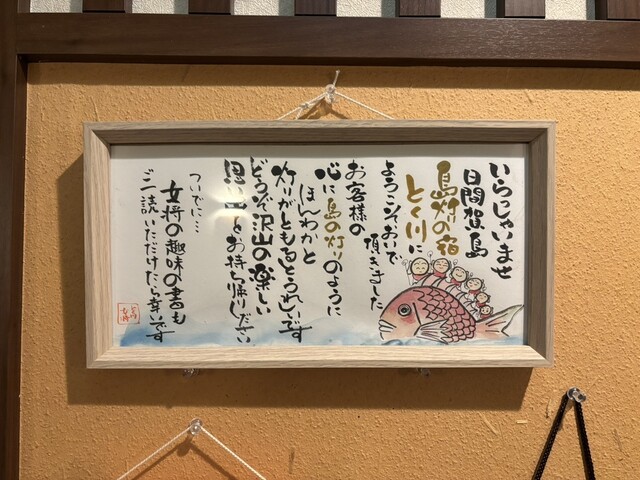 いらっしゃいませ
日間賀島
島灯りの宿
とく川に
ようこそおいで
頂きました
お客様の
心に島の灯りのように
ほんわかと
灯りがともるとうれしいです
どうぞ沢山の楽しい
思い出をお持ち帰りください
ついでに…
女将の趣味の書も
ご一読いただけたら幸いです